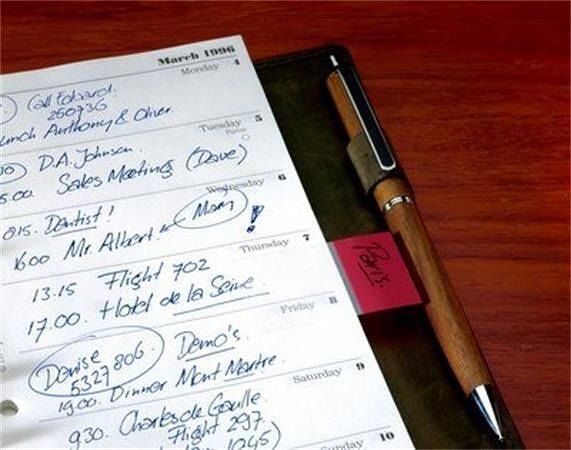 March 1996
Monday 4
Call Edward.
250736
Lunch Anthony & Oliver.
Tuesday 5
D.A. Johnson.
Sales Meeting (Dave)
Wednesday 6
815. Dentist!
1600 Mr. Albert. Mary !
Thursday 7
13.15 Flight 702
17.00. Hotel de la Seine
Paris.
Friday 8
Denise
5327806. Demo's.
1900. Dinner Mont Martre.
Saturday 9
930. Charles de Gaulle.
Flight 297.
1245)
10